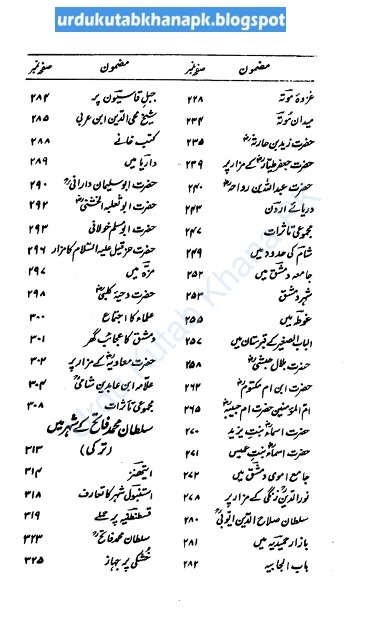 urdukutabkhanapk.blogspot
مضمون صفحہ نمبر
غزوۂ موتہ ۲۲۸
میدان موتہ ۲۳۴
حضرت زید بن حارثہؓ ۲۳۵
حضرت جعفر طیارؓ کے مزار پر ۲۳۹
حضرت عبداللہ بن رواحہؓ ۲۴۰
دریائے اردن ۲۴۳
مجموعی تأثرات ۲۴۷
شام کی حدود میں ۲۴۹
جامعہ دمشق میں ۲۵۲
شہر دمشق ۲۵۳
غوطہ میں ۲۵۵
الباب الصغیر کے قبرستان میں ۲۵۷
حضرت بلال حبشیؓ ۲۵۸
حضرت ابن ام مکتومؓ ۲۶۲
ام المؤمنین حضرت ام حبیبہؓ ۲۶۵
حضرت اسماءؓ بنت یزید ۲۷۰
حضرت اسماءؓ بنت عمیس ۲۷۱
جامع اموی دمشق میں ۲۷۲
نور الدین زنگی کے مزار پر ۲۷۸
سلطان صلاح الدین ایوبیؒ ۲۸۰
بازار حمیدیہ میں ۲۸۱
باب الجابیہ ۲۸۲
مضمون صفحہ نمبر
جبل قاسیون پر ۲۸۴
شیخ محی الدین ابن عربی ۲۸۵
کتب خانے ۲۸۸
داریا میں ۲۸۹
حضرت ابو سلیمان دارانیؒ ۲۹۰
حضرت ابو ثعلبہ الخشنیؓ ۲۹۲
حضرت ابو مسلم خولانی ۲۹۳
حضرت حزقیل علیہ السلام کا مزار ۲۹۶
مزہ میں ۲۹۷
حضرت دحیہ کلبیؓ ۲۹۸
علماء کا اجتماع ۳۰۰
دمشق کا عجائب گھر ۳۰۱
حضرت معاویہؓ کے مزار پر ۳۰۲
علامہ ابن عابدین شامیؒ ۳۰۴
مجموعی تأثرات ۳۰۸
سلطان محمد فاتح کے شہر میں
(ترکی) ۳۱۳
ایتھنز ۳۱۴
استنبول شہر کا تعارف ۳۱۸
قسطنطنیہ پر حملے ۳۱۹
سلطان محمد فاتحؒ ۳۲۳
خشکی پر جہاز ۳۲۵
Urdu Kutab Khana PK